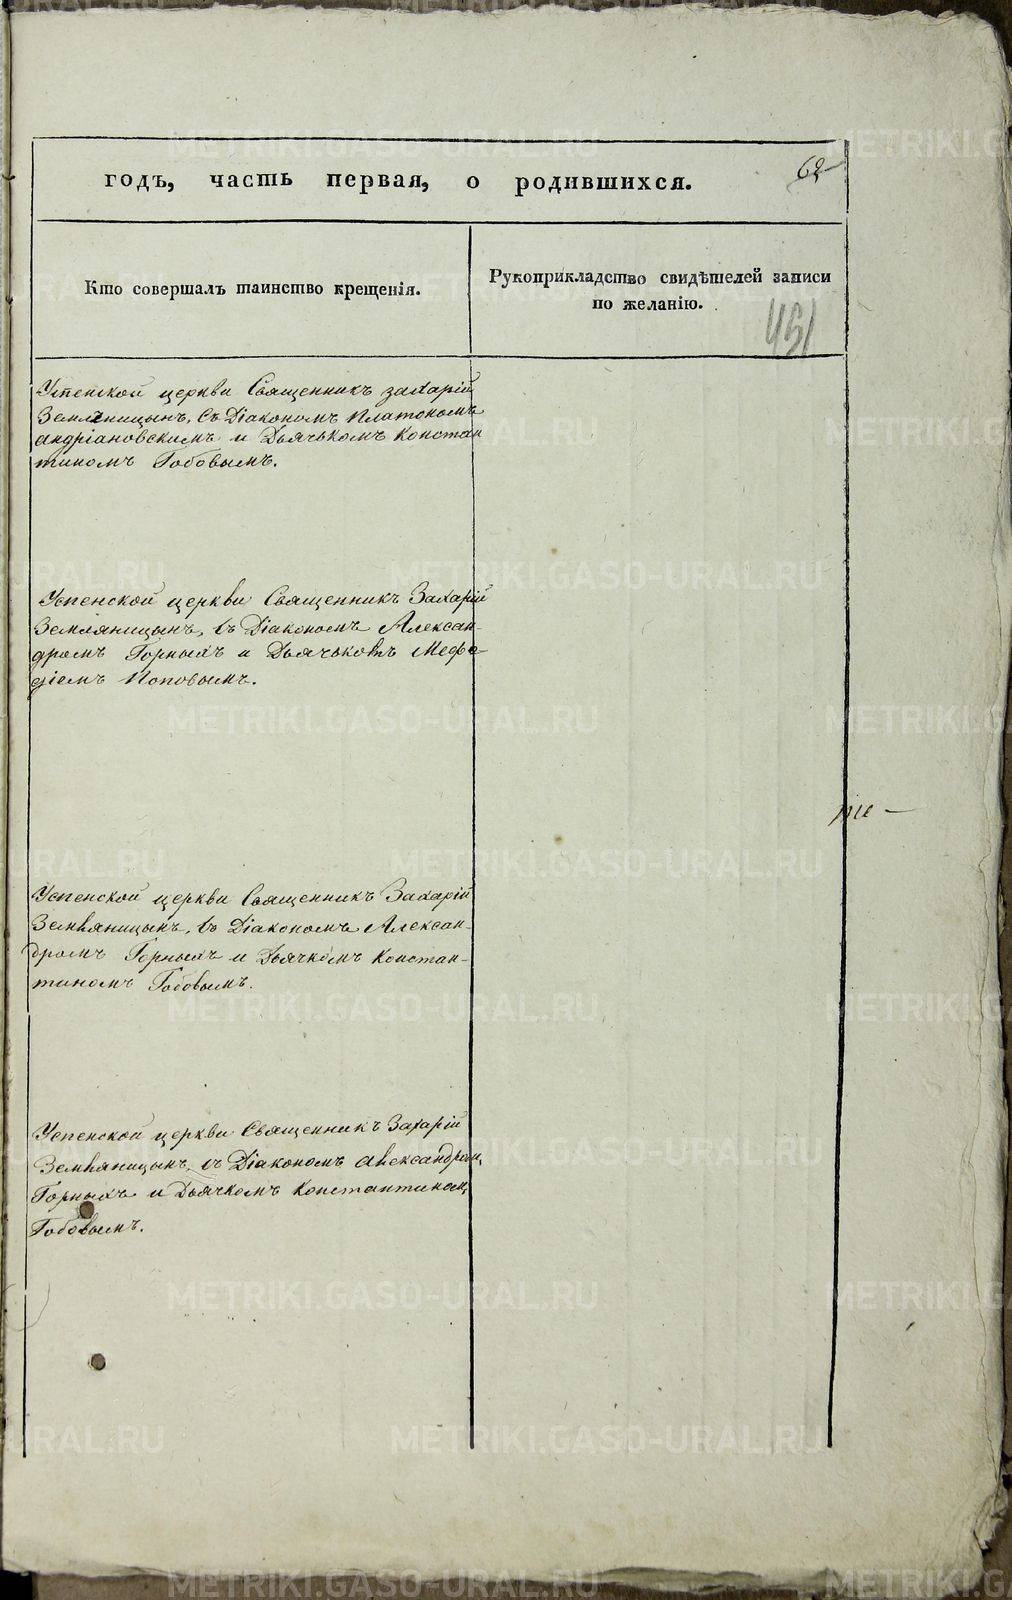 годъ, часть первая, о родившихся.
62
Кто совершалъ таинство крещенія.
Рукоприкладство свидѣтелей записи
по желанію.
451
Успенской церкви Священникъ Захарій
Земляницынъ, съ Діакономъ Платономъ
Андріановскимъ и Дьячькомъ Констан
тиномъ Гобовымъ.
Успенской церкви Священникъ Захарій
Земляницынъ, съ Діакономъ Алексан-
дромъ Горныхъ и Дьячькомъ Мефо-
діемъ Поповымъ.
Успенской церкви Священникъ Захарій
Земляницынъ, съ Діакономъ Алексан-
дромъ Горныхъ и Дьячкомъ Констан-
тиномъ Гобовымъ.
Успенской церкви Священникъ Захарій
Земляницынъ, съ Діакономъ Александромъ
Горныхъ и Дьячкомъ Константиномъ
Гобовымъ.
METRIKI.GASO-URAL.RU